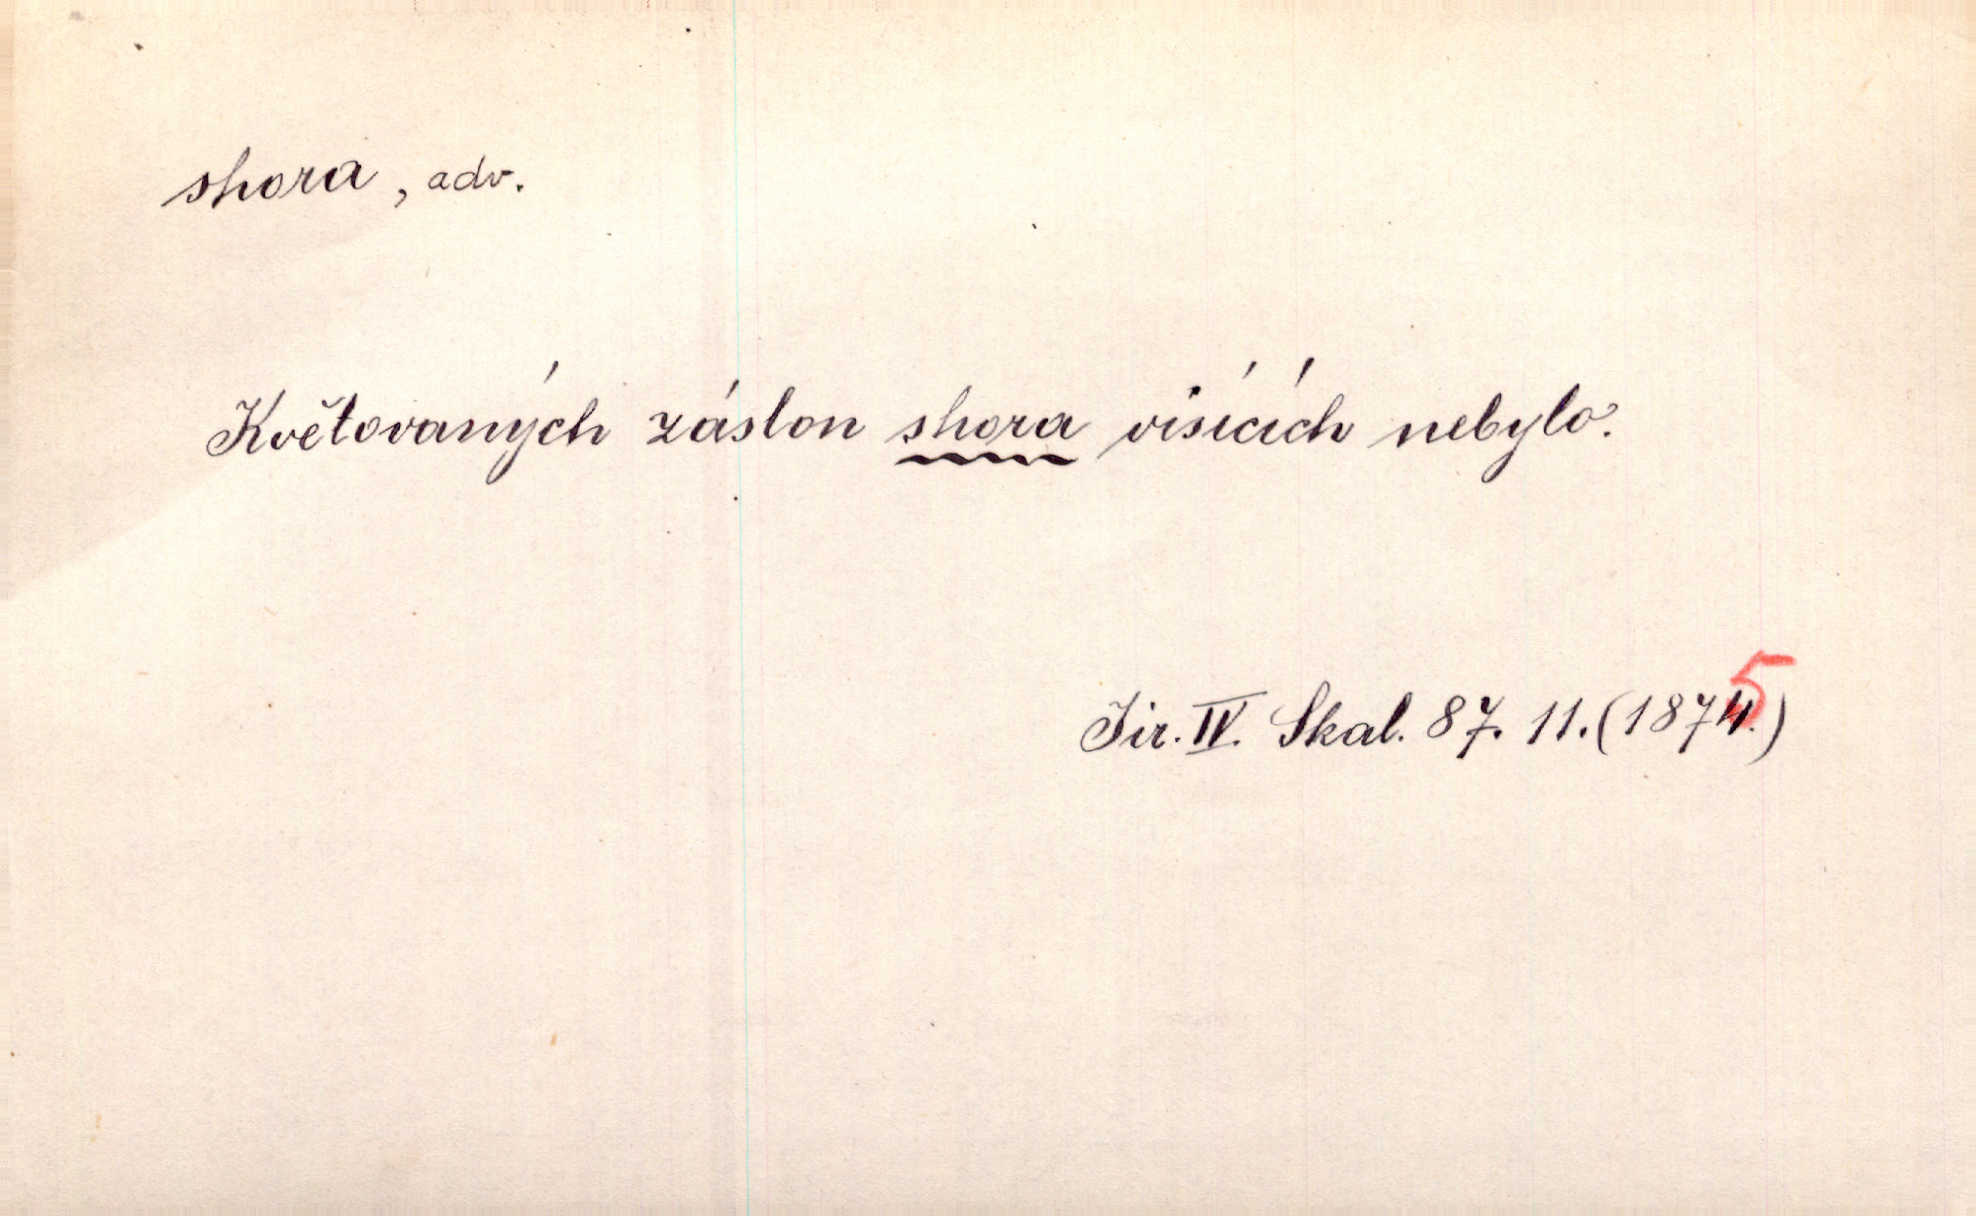 shora, adv.
Květovaných záslon shora visících nebylo.
Jir. IV. Skal. 87. 11. (1875)